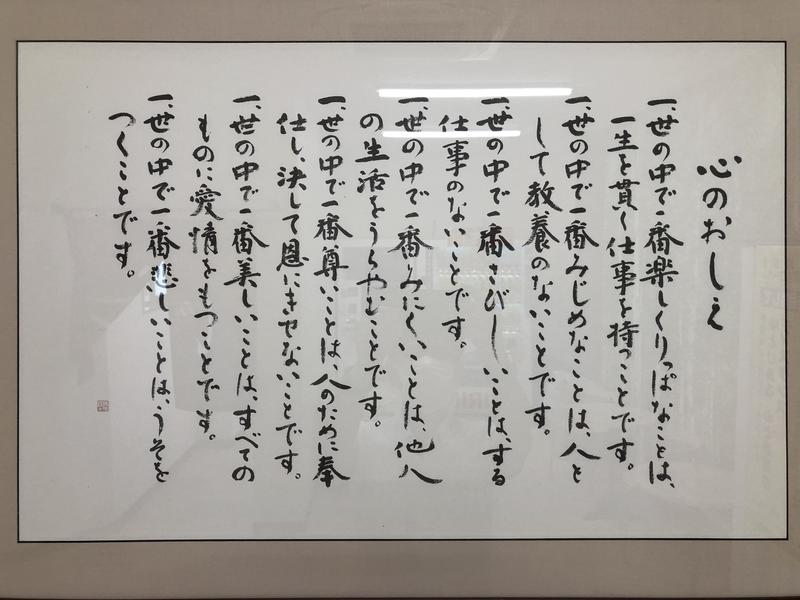 心のおしえ
一、世の中で一番楽しくりっぱなことは、
一生を貫く仕事を持つことです。
一、世の中で一番みじめなことは、人と
して教養のないことです。
一、世の中で一番さびしいことは、する
仕事のないことです。
一、世の中で一番みにくいことは、他人
の生活をうらやむことです。
一、世の中で一番尊いことは、人のために奉
仕し、決して恩にきせないことです。
一、世の中で一番美しいことは、すべての
ものに愛情をもつことです。
一、世の中で一番悲しいことは、うそを
つくことです。